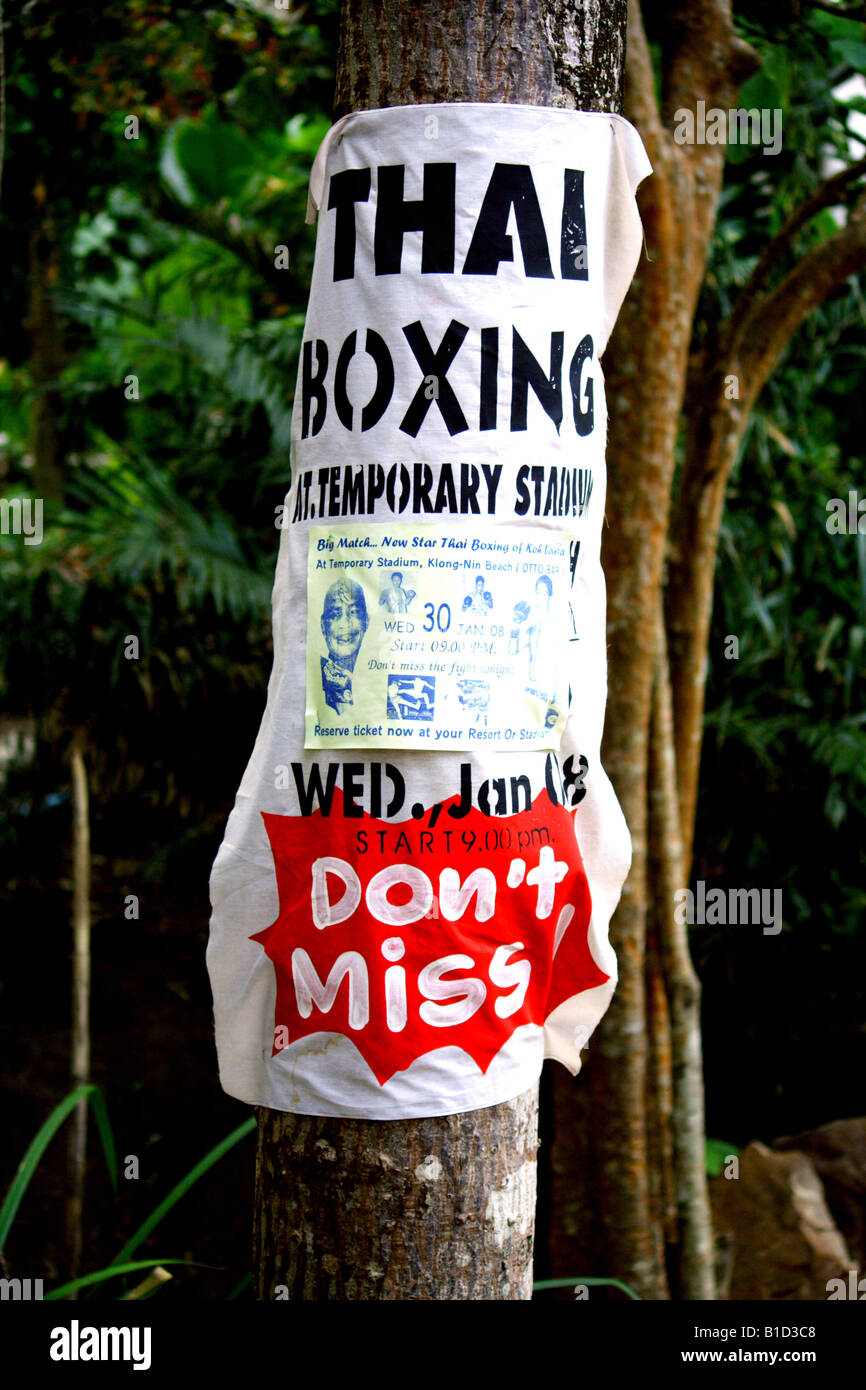 THAI
BOXING
AT.TEMPORARY STADIUM
Big Match... New Star Thai Boxing of Koh Lanta
At Temporary Stadium, Klong-Nin Beach ( OTTO BAR )
WED 30 JAN. 08
Start 09.00 P.M.
Don't miss the fight tonight
Reserve ticket now at your Resort Or Stadium
WED., Jan 08
START 9.00 pm.
Don't
Miss
alamy
Image ID: B1D3C8
www.alamy.com